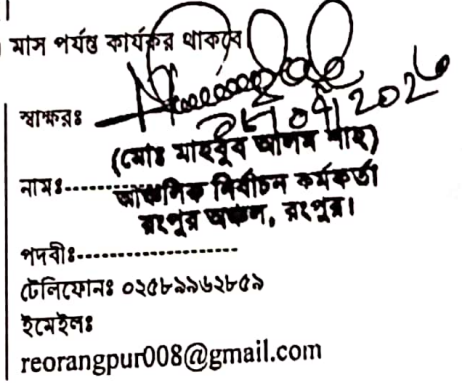 মাস পর্যন্ত কার্যকর থাকবে
স্বাক্ষরঃ
04/2026
(মোঃ মাহবুব আলম শাহ)
নামঃ-----------
আঞ্চলিক নির্বাচন কর্মকর্তা
রংপুর অঞ্চল, রংপুর।
পদবীঃ------------------
টেলিফোনঃ ০২৫৮৯৯৬২৮৫৯
ইমেইলঃ
reorangpur008@gmail.com